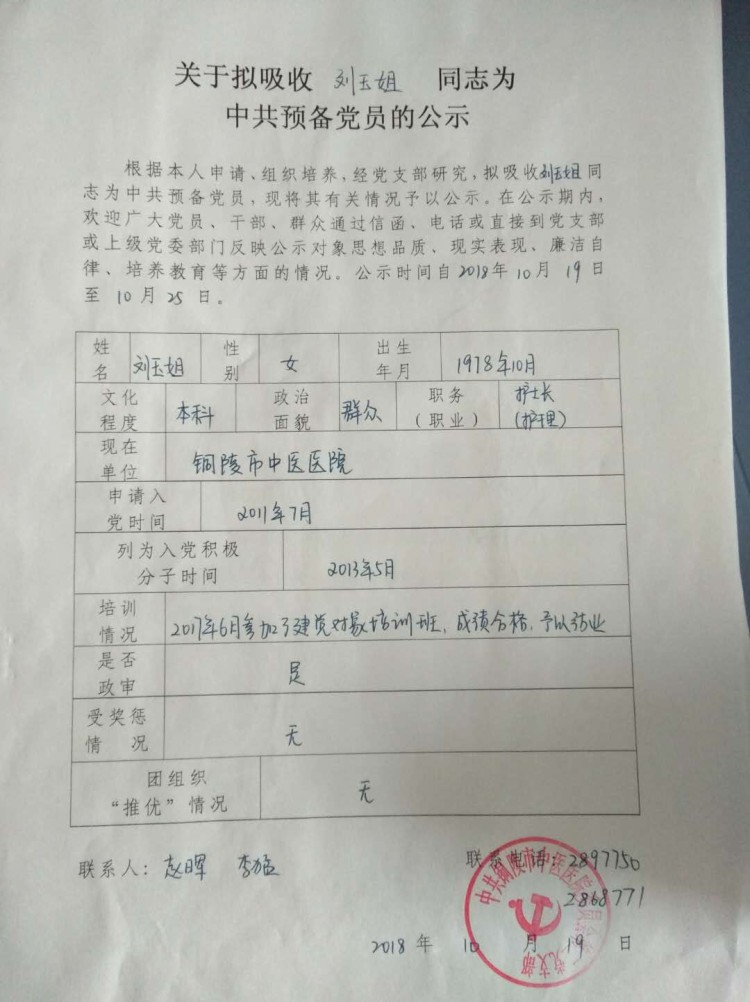 关于拟吸收 刘玉姐 同志为
中共预备党员的公示
根据本人申请、组织培养,经党支部研究,拟吸收刘玉姐同
志为中共预备党员,现将其有关情况予以公示。在公示期内,
欢迎广大党员、干部、群众通过信函、电话或直接到党支部
或上级党委部门反映公示对象思想品质、现实表现、廉洁自
律、培养教育等方面的情况。公示时间自2018年10月19日
至10月25日。
姓名 刘玉姐 性别 女 出生年月 1978年10月
文化程度 本科 政治面貌 群众 职务(职业) 护士长(护理)
现在单位 铜陵市中医医院
申请入党时间 2011年7月
列为入党积极分子时间 2013年5月
培训情况 2017年6月参加了建党对象培训班,成绩合格,予以结业
是否政审 是
受奖惩情况 无
团组织“推优”情况 无
联系人:赵晖 李
联系电话:2897750
2868771
中共铜陵市中医医院
党支部
2018年10月19日